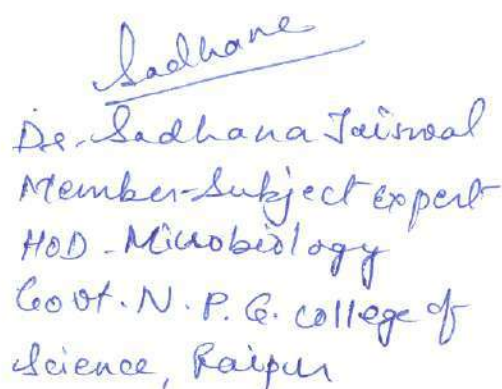 Sadhana
Dr. Sadhana Jaiswal
Member-Subject Expert
HOD - Microbiology
Govt. N. P. G. college of
Science, Raipur